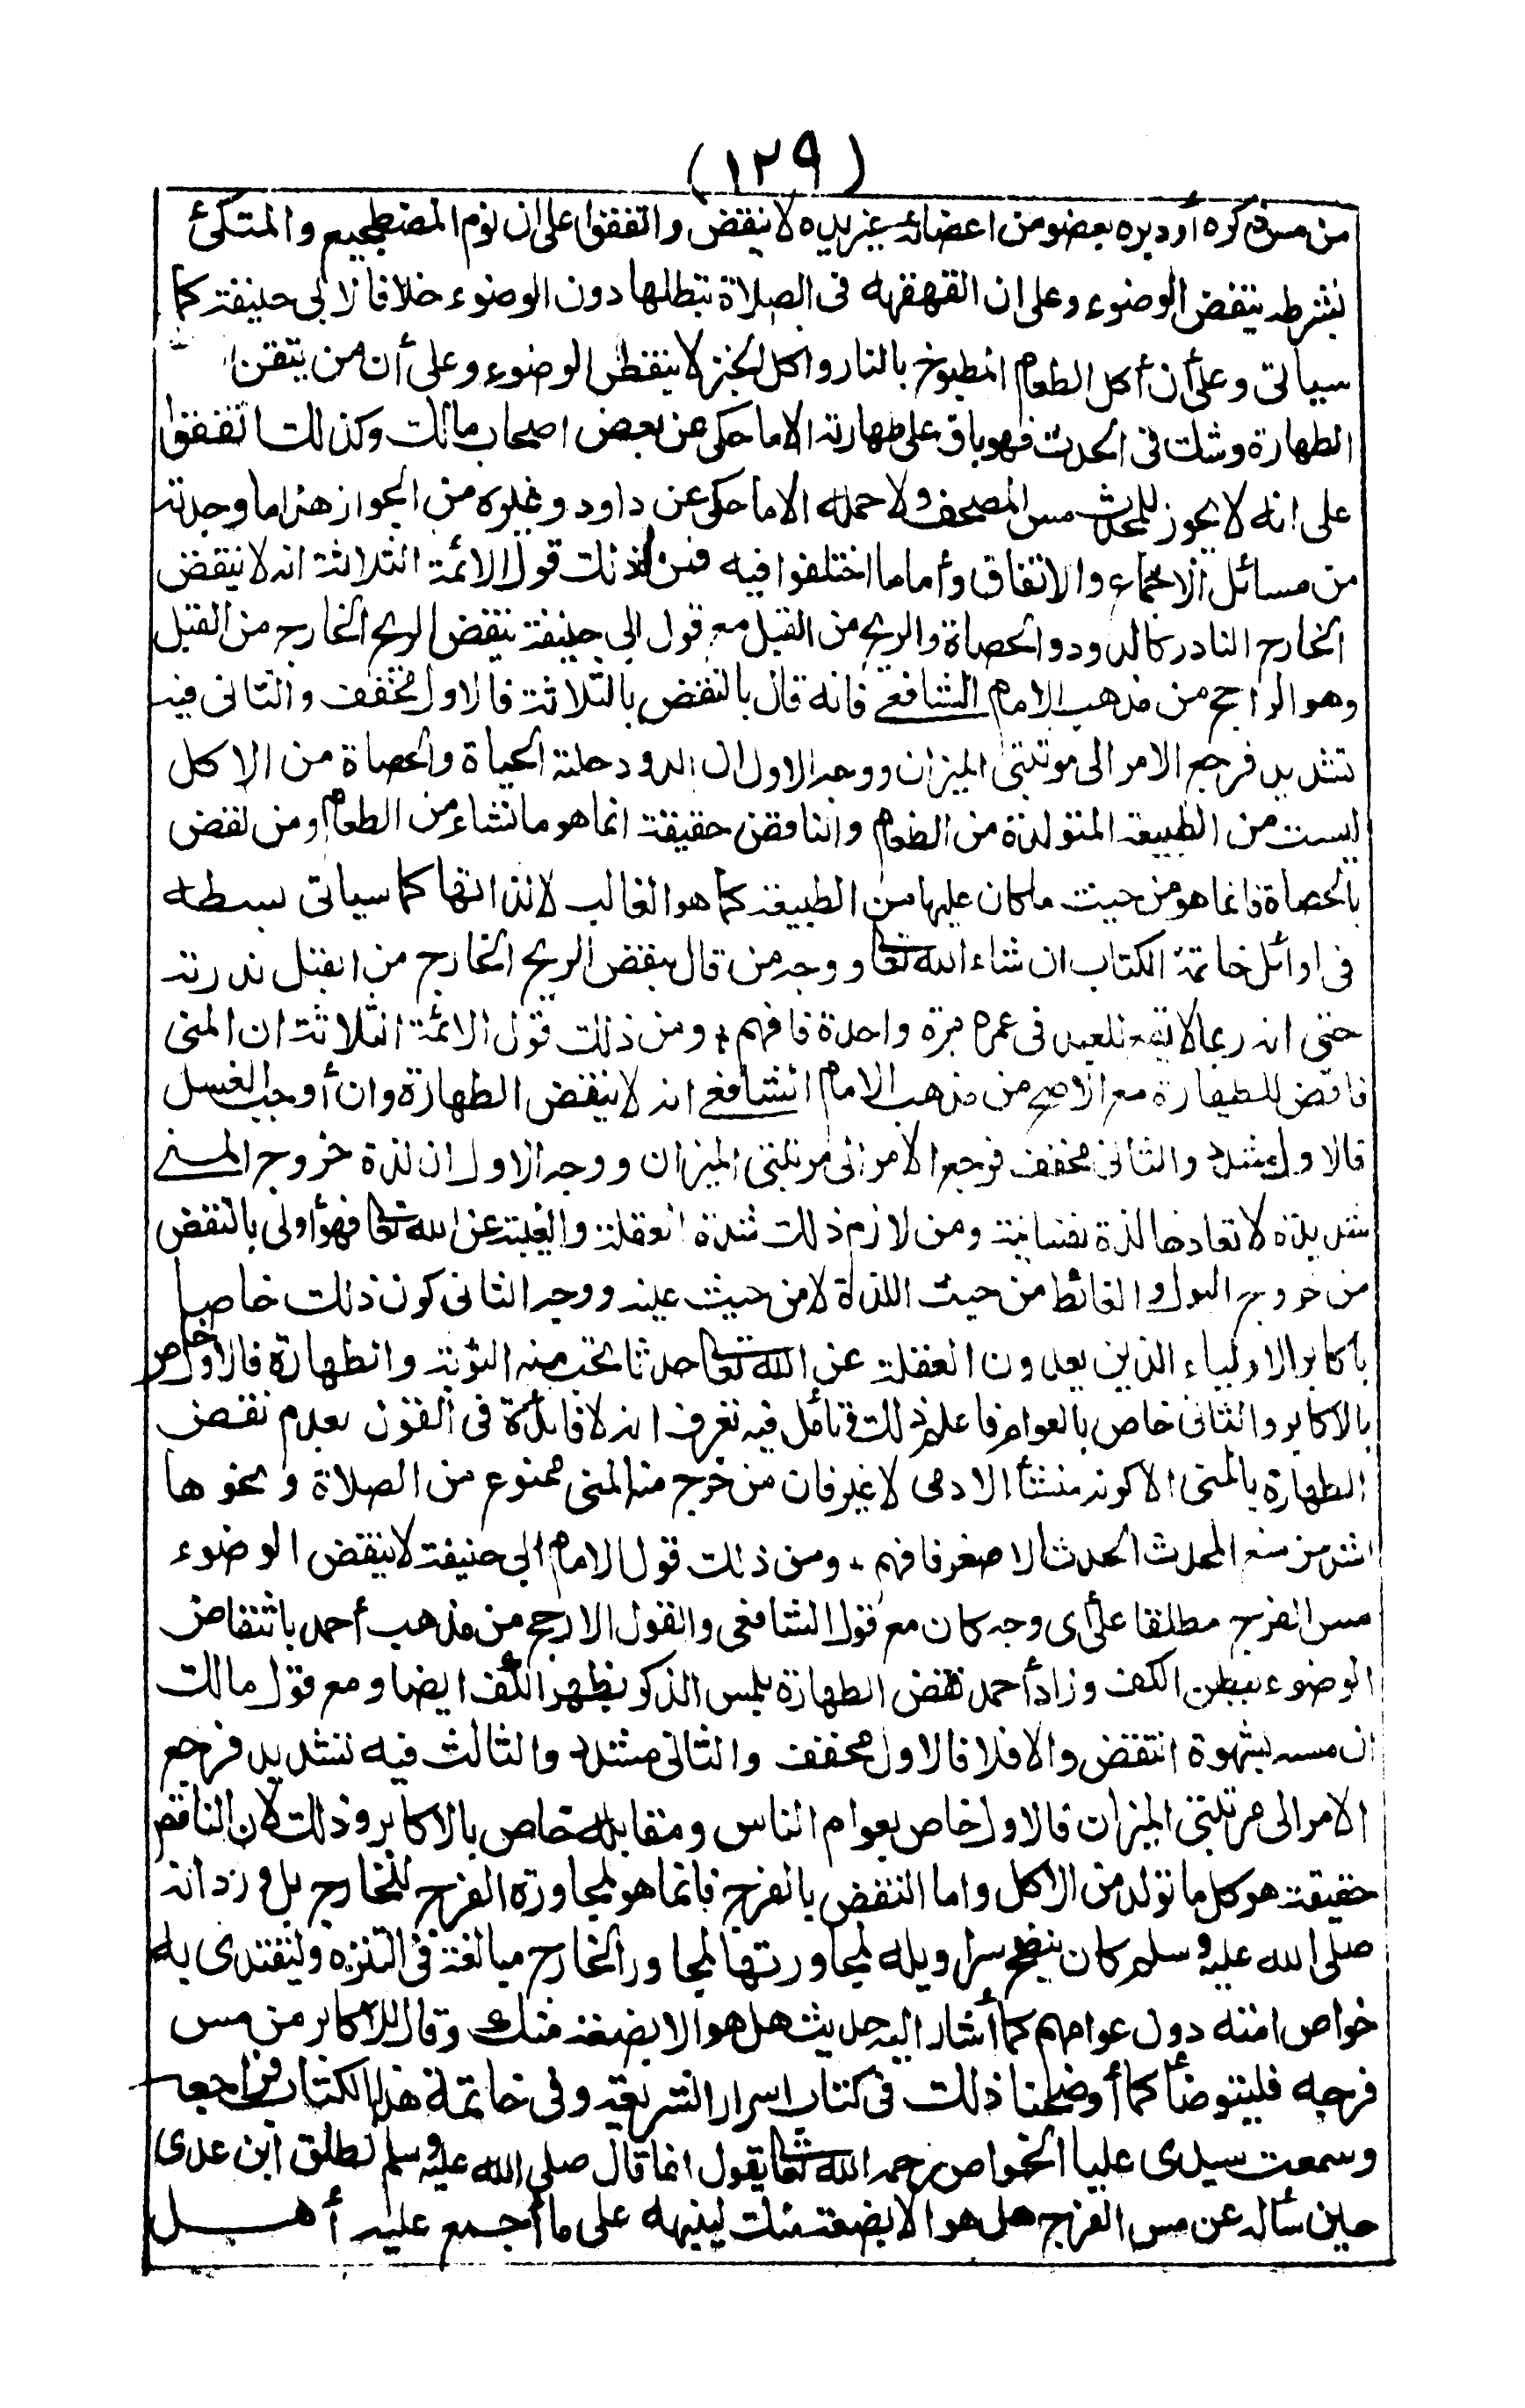 (١٢٩)
من مس ذكره أو دبره بعضو من اعضائه غير يده لا ينقض واتفقوا على ان نوم المضطجع والمتكئ
بشرطه ينقض الوضوء وعلى ان القهقهه فى الصلاة تبطلها دون الوضوء خلافا لابى حنيفة كما
سياتى وعلى أن أكل الطعام المطبوخ بالنار واكل الخبز لا ينقض الوضوء وعلى أن من تيقن
الطهارة وشك فى الحدث فهو باق على طهارته الا ما حكى عن بعض اصحاب مالك وكذلك اتفقوا
على انه لا يجوز للمحدث مس المصحف ولا حمله الا ما حكى عن داود وغيره من الجواز هذا ما وجدته
من مسائل الاجماع والاتفاق وأما ما اختلفوا فيه فمن ذلك قول الائمة الثلاثة انه لا ينقض
الخارج النادر كالدود والحصاة والريح من القبل مع قول ابى حنيفة ينقض الريح الخارج من القبل
وهو الراجح من مذهب الامام الشافعى فانه قال بالنقض بالثلاثة فالاول مخفف والثانى فيه
تشديد فرجع الامر الى مرتبتى الميزان ووجه الاول ان الدود حلته الحياة والحصاة من الاكل
ليست من الطبيعة المتولدة من الطعام والناقض حقيقة انما هو ما نشاء من الطعام ومن نقض
بالحصاة فانما هو من حيث ما كان عليها من الطبيعة كما هو الغالب لا لذاتها كما سياتى بسطه
فى اوائل خاتمة الكتاب ان شاء الله تعا ووجه من قال بنقض الريح الخارج من القبل ندرته
حتى انه ربما لا تقع للعبد فى عمره مرة واحدة فافهم ؛ ومن ذلك قول الائمة الثلاثة ان المنى
ناقض للطهارة مع الاصح من مذهب الامام الشافعى انه لا ينقض الطهارة وان أوجب الغسل
فالاول مشدد والثانى مخفف فرجع الامر الى مرتبتى الميزان ووجه الاول ان لذة خروج المنى
شديدة لا تعادلها لذة نفسانية ومن لازم ذلك شدة الغفلة والغيبة عن الله تعا فهو أولى بالنقض
من خروج البول والغائط من حيث اللذة لا من حيث عينه ووجه الثانى كون ذلك خاصا
باكابر الاولياء الذين يعدون الغفلة عن الله تعا حدثا تجب منه التوبة والطهارة فالاول خاص
بالاكابر والثانى خاص بالعوام فاعلم ذلك وتأمل فيه تعرف انه لا فائدة فى القول بعدم نقض
الطهارة بالمنى الا كونه منشأ الادمى لا غير فان من خرج منه المنى ممنوع من الصلاة ونحوها
اشد من منع المحدث الحدث الاصغر فافهم ؛ ومن ذلك قول الامام ابى حنيفة لا ينقض الوضوء
مس الفرج مطلقا على أى وجه كان مع قول الشافعى والقول الارجح من مذهب أحمد بانتقاض
الوضوء ببطن الكف وزاد أحمد نقض الطهارة بلمس الذكر بظهر الكف ايضا ومع قول مالك
ان مسه بشهوة انتقض والا فلا فالاول مخفف والثانى مشدد والثالث فيه تشديد فرجع
الامر الى مرتبتى الميزان فالاول خاص بعوام الناس ومقابله خاص بالاكابر وذلك لان الناقض
حقيقة هو كل ما تولد من الاكل واما النقض بالفرج فانما هو لمجاورة الفرج للخارج بل ورد انه
صلى الله عليه وسلم كان ينضح سراويله لمجاورتها لمجاور الخارج مبالغة فى التنزه وليقتدى به
خواص امته دون عوامهم كما أشار اليه حديث هل هو الا بضعة منك وقال للاكابر من مس
فرجه فليتوضأ كما أوضحنا ذلك فى كتاب اسرار الشريعة وفى خاتمة هذا الكتاب فراجعه
وسمعت سيدى عليا الخواص رحمه الله تعا يقول انما قال صلى الله عليه وسلم لطلق ابن عدى
حين سأله عن مس الفرج هل هو الا بضعة منك لينبهه على ما أجمع عليه أهل